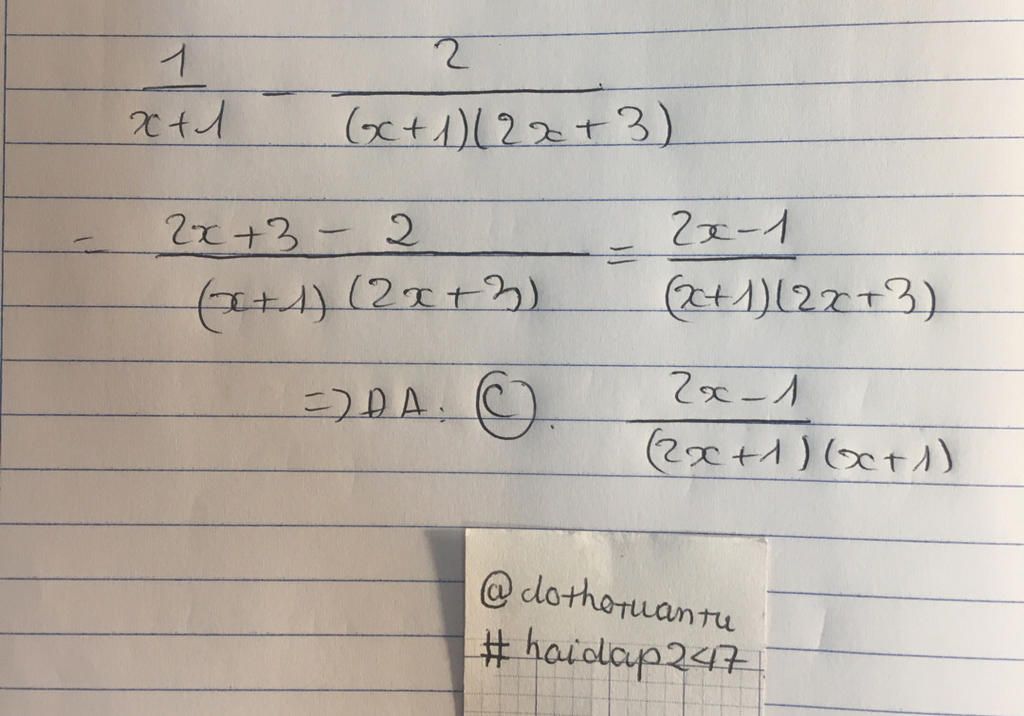 1/(x+1) - 2/((x+1)(2x+3))
= (2x+3 - 2)/((x+1)(2x+3)) = (2x-1)/((x+1)(2x+3))
=> ĐA: C. (2x-1)/((2x+1)(x+1))
@dothotuantu
#hoidap247